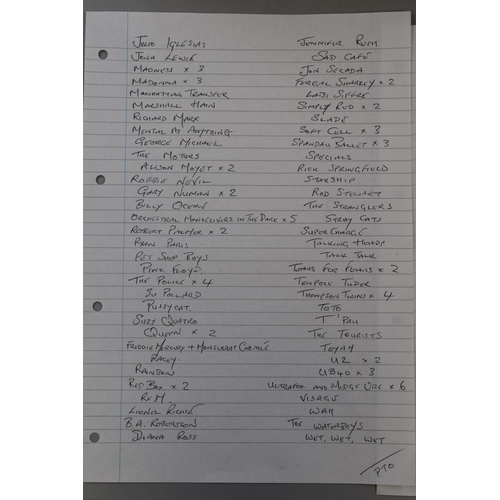 Julio Iglesias
Jona Lewie
Madness x 3
Madonna x 3
Manhattan Transfer
Marshall Hain
Richard Marx
Mental As Anything
George Michael
The Motors
Alison Moyet x 2
Robbie Nevil
Gary Numan x 2
Billy Ocean
Orchestral Manoeuvers in the Dark x 5
Robert Palmer x 2
Ryan Paris
Pet Shop Boys
Pink Floyd
The Police x 4
Su Pollard
Pussycat
Suzy Quatro
Queen x 2
Freddie Mercury + Monserrat Caballé
Racey
Rainbow
Red Box x 2
R.E.M.
Lionel Richie
B.A. Robertson
Diana Ross
Jennifer Rush
Sad Café
Jon Secada
Fergal Sharkey x 2
Labi Siffre
Simply Red x 2
Slade
Soft Cell x 3
Spandau Ballet x 3
Specials
Rick Springfield
Starship
Rod Stewart
The Stranglers
Stray Cats
Supercharge
Talking Heads
Talk Talk
Tears For Fears x 2
Tenpole Tudor
Thompson Twins x 4
Toto
T'Pau
The Tourists
Toyah
U2 x 2
UB40 x 3
Ultravox and Midge Ure x 6
Visage
Wah
The Waterboys
Wet, Wet, Wet
PTO